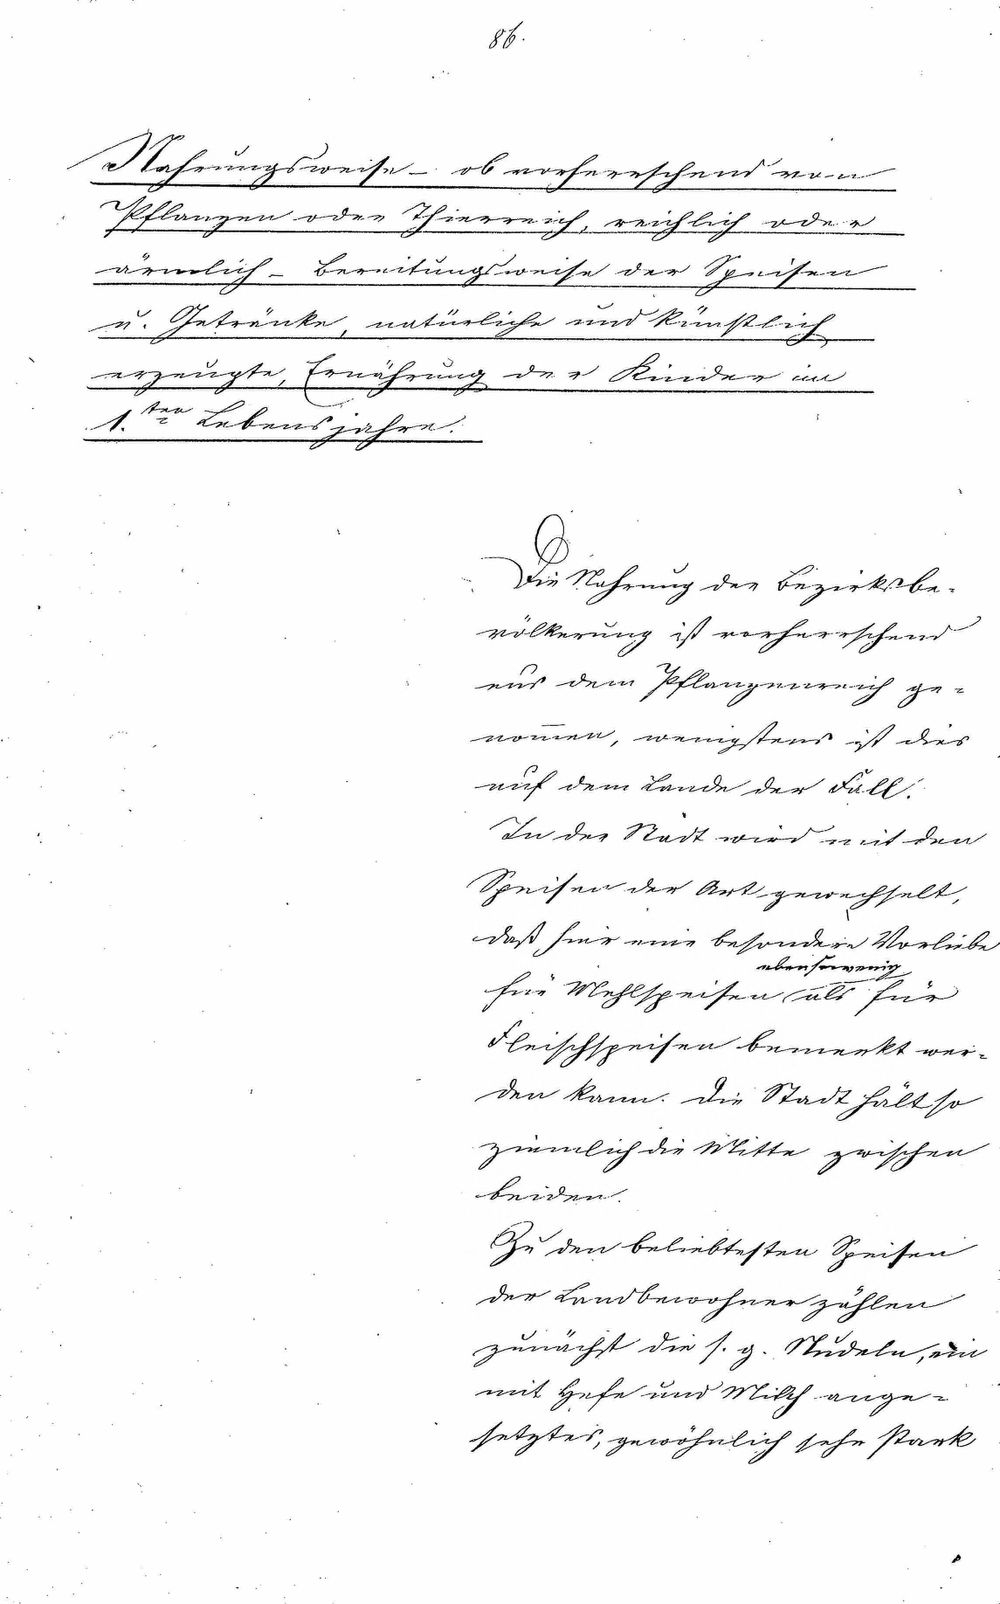 86.
Nahrungsweise – ob vorherrschend von
Pflanzen oder Thierreich, reichlich oder
ärmlich – Bereitungsweise der Speisen
u. Getränke, natürliche und künstlich
erzeugte, Ernährung der Kinder im
1.ten Lebensjahre.
Die Nahrung der Bezirksbe-
völkerung ist vorherrschend
aus dem Pflanzenreich ge-
nom̄en, wenigstens ist dies
auf dem Lande der Fall.
In der Stadt wird mit den
Speisen der Art gewechselt,
daß hier eine besondere Vorliebe
ebensowenig
für Mehlspeisen als für
Fleischspeisen bemerkt wer-
den kann. Die Stadt hält so
ziemlich die Mitte zwischen
beiden.
Zu den beliebtesten Speisen
der Landbewohner zählen
zunächst die s. g. Nudeln, ein
mit Hefe und Milch ange-
setztes, gewöhnlich sehr stark